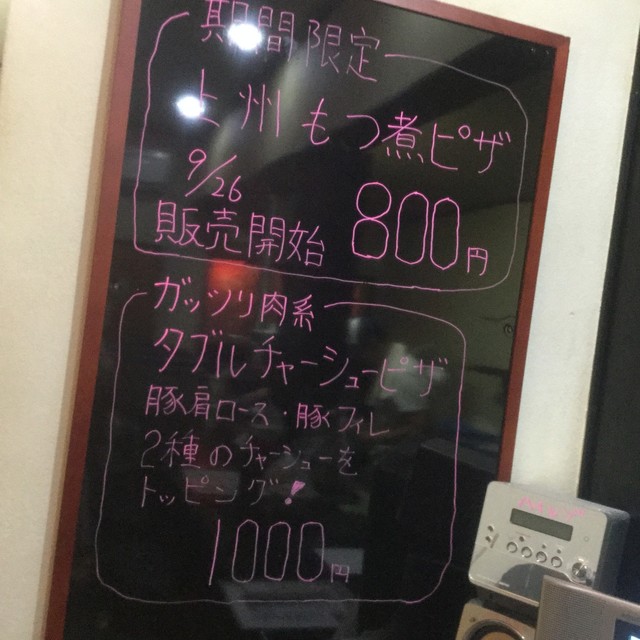 期間限定
上州もつ煮ピザ
9/26
販売開始 800円
ガッツリ肉系
タブルチャーシューピザ
豚肩ロース・豚フィレ
2種のチャーシューを
トッピング!
1000円